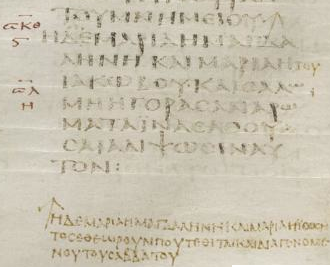 ΤΟΥΜΝΗΜΕΙΟΥ
ϹΚΘ
Ϛ
ΗΔΕΜΑΡΙΑΗΜΑΓΔΑ
ΛΗΝΗΚΑΙΜΑΡΙΑΗΤΟΥ
ϹΛ
Η
ΙΑΚΩΒΟΥ·ΚΑΙϹΑΛΩ
ΜΗΗΓΟΡΑϹΑΝΑΡΩ
ΜΑΤΑΪΝΑΕΛΘΟΥ
ϹΑΙΑΛΙΨΩϹΙΝΑΥ
ΤΟΝ:
ΗΔΕΜΑΡΙΑΗΜΑΓΔΑΛΗΝΗΚΑΙΜΑΡΙΑΗΪΩϹΗ
ΤΟϹΕΘΕΩΡΟΥΝΠΟΥΤΕΘΙΤΑΙΚΑΙΔΙΑΓΕΝΟΜΕ
ΝΟΥΤΟΥϹΑΒΒΑΤΟΥ